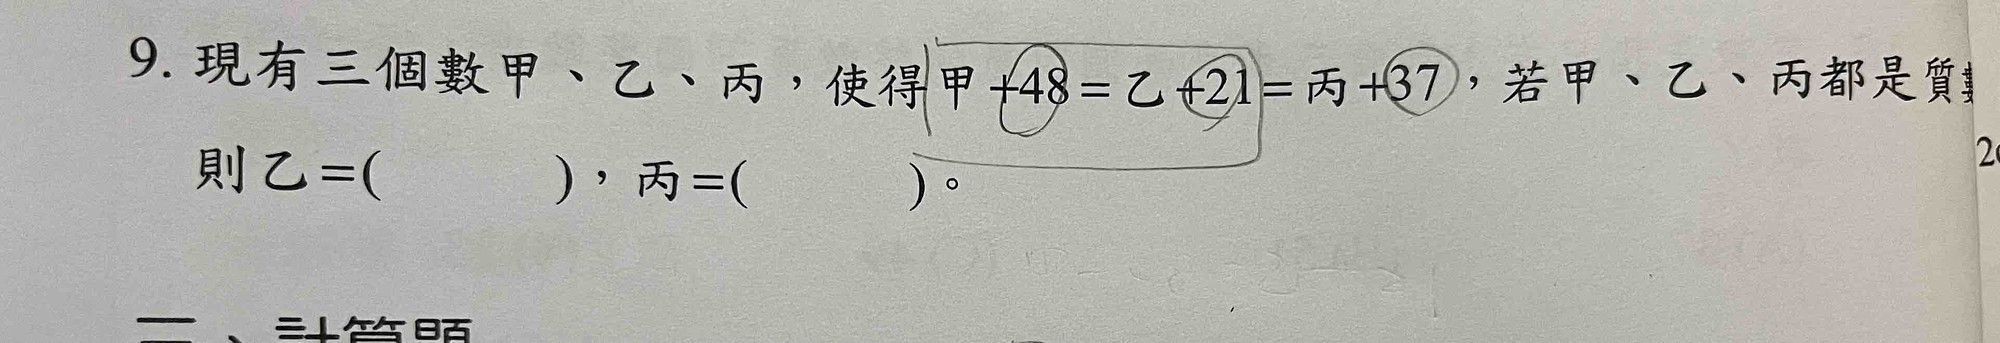 9. 現有三個數甲、乙、丙，使得甲+48=乙+21=丙+37，若甲、乙、丙都是質數
則乙=(　　　)，丙=(　　　)。
二、計算題